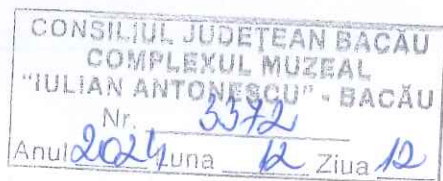 CONSILIUL JUDEȚEAN BACĂU
COMPLEXUL MUZEAL
"IULIAN ANTONESCU" - BACĂU
Nr. 3372
Anul 2024 Luna 12 Ziua 12